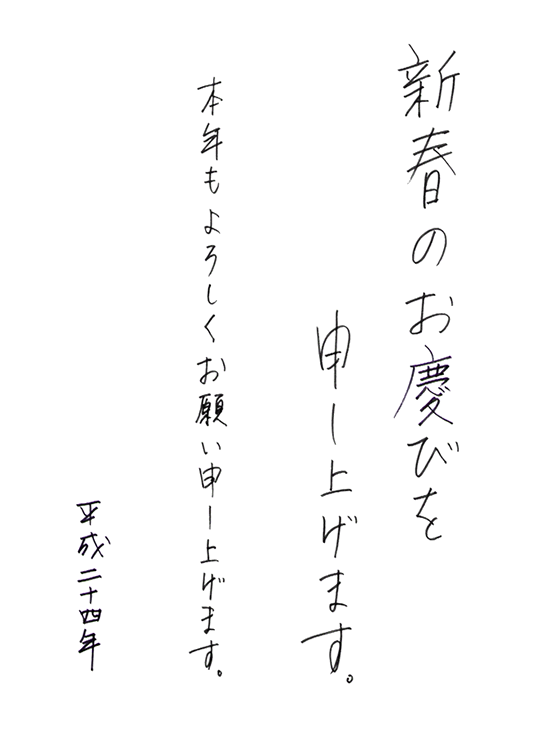 新春のお慶びを
申し上げます。
本年もよろしくお願い申し上げます。
平成二十四年